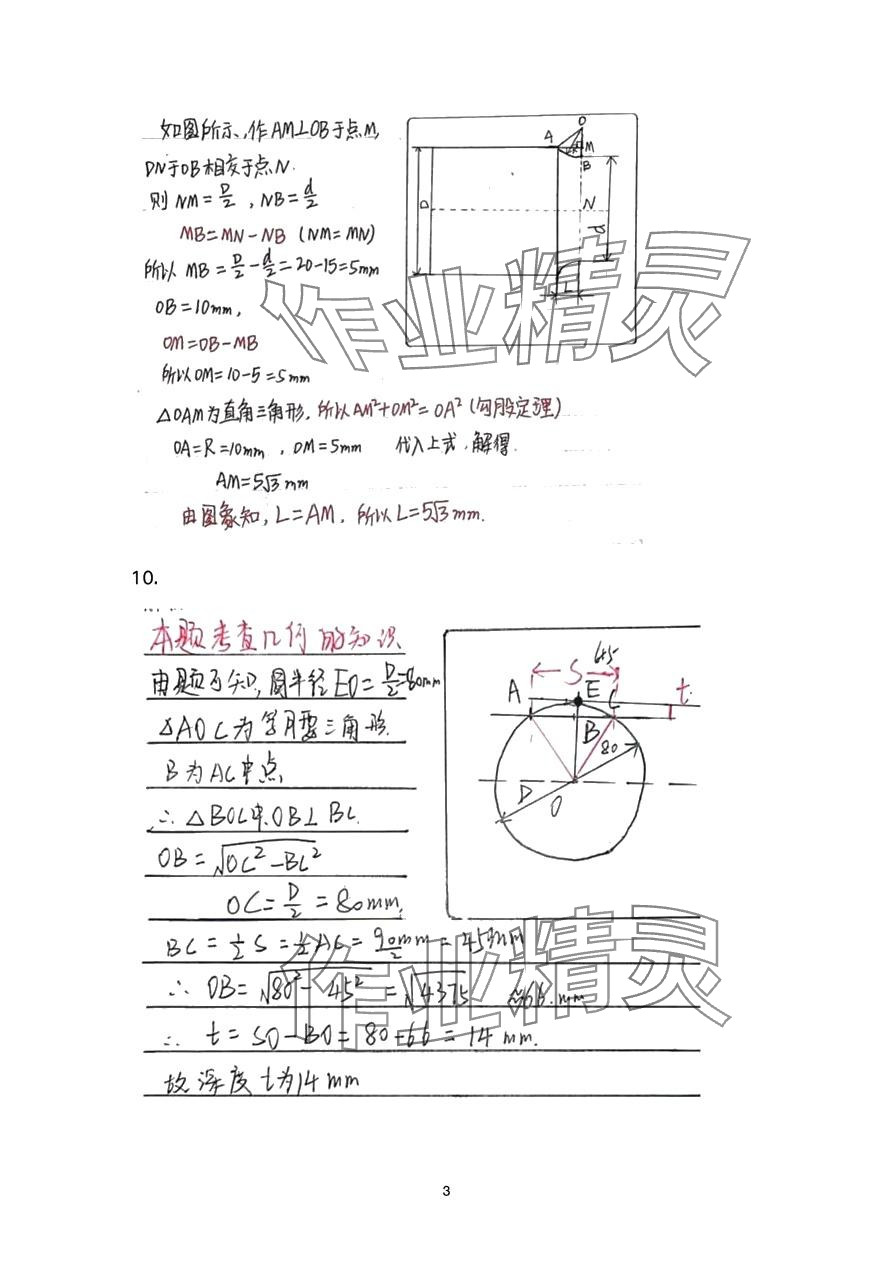 如图所示,作AM⊥OB于点M,
DN于OB相交于点N.
则 NM=D/2 , NB=d/2
MB=MN-NB (NM=MN)
所以 MB=D/2-d/2=20-15=5mm
OB=10mm,
OM=OB-MB
所以OM=10-5=5mm
△OAM为直角三角形,所以AM²+OM²=OA²(勾股定理)
OA=R=10mm , OM=5mm 代入上式,解得.
AM=5√3 mm
由图象知, L=AM, 所以L=5√3mm.
O
A
M
B
D
N
d
L
10.
本题考查几何的知识
由题可知,圆半径EO=D/2=80mm
△AOC为等腰三角形.
B为AC中点
∴△BOC中.OB⊥BC.
OB=√OC²-BC²
OC=D/2=80mm,
BC=½S=½AC=90mm/2=45mm
∴ OB=√80²-45²=√4375 ≈66.mm
∴ t=SO-BO=80-66=14 mm.
故深度t为14mm
S
A
E
C
t
B
80
D
O
作业精灵
作业精灵
3